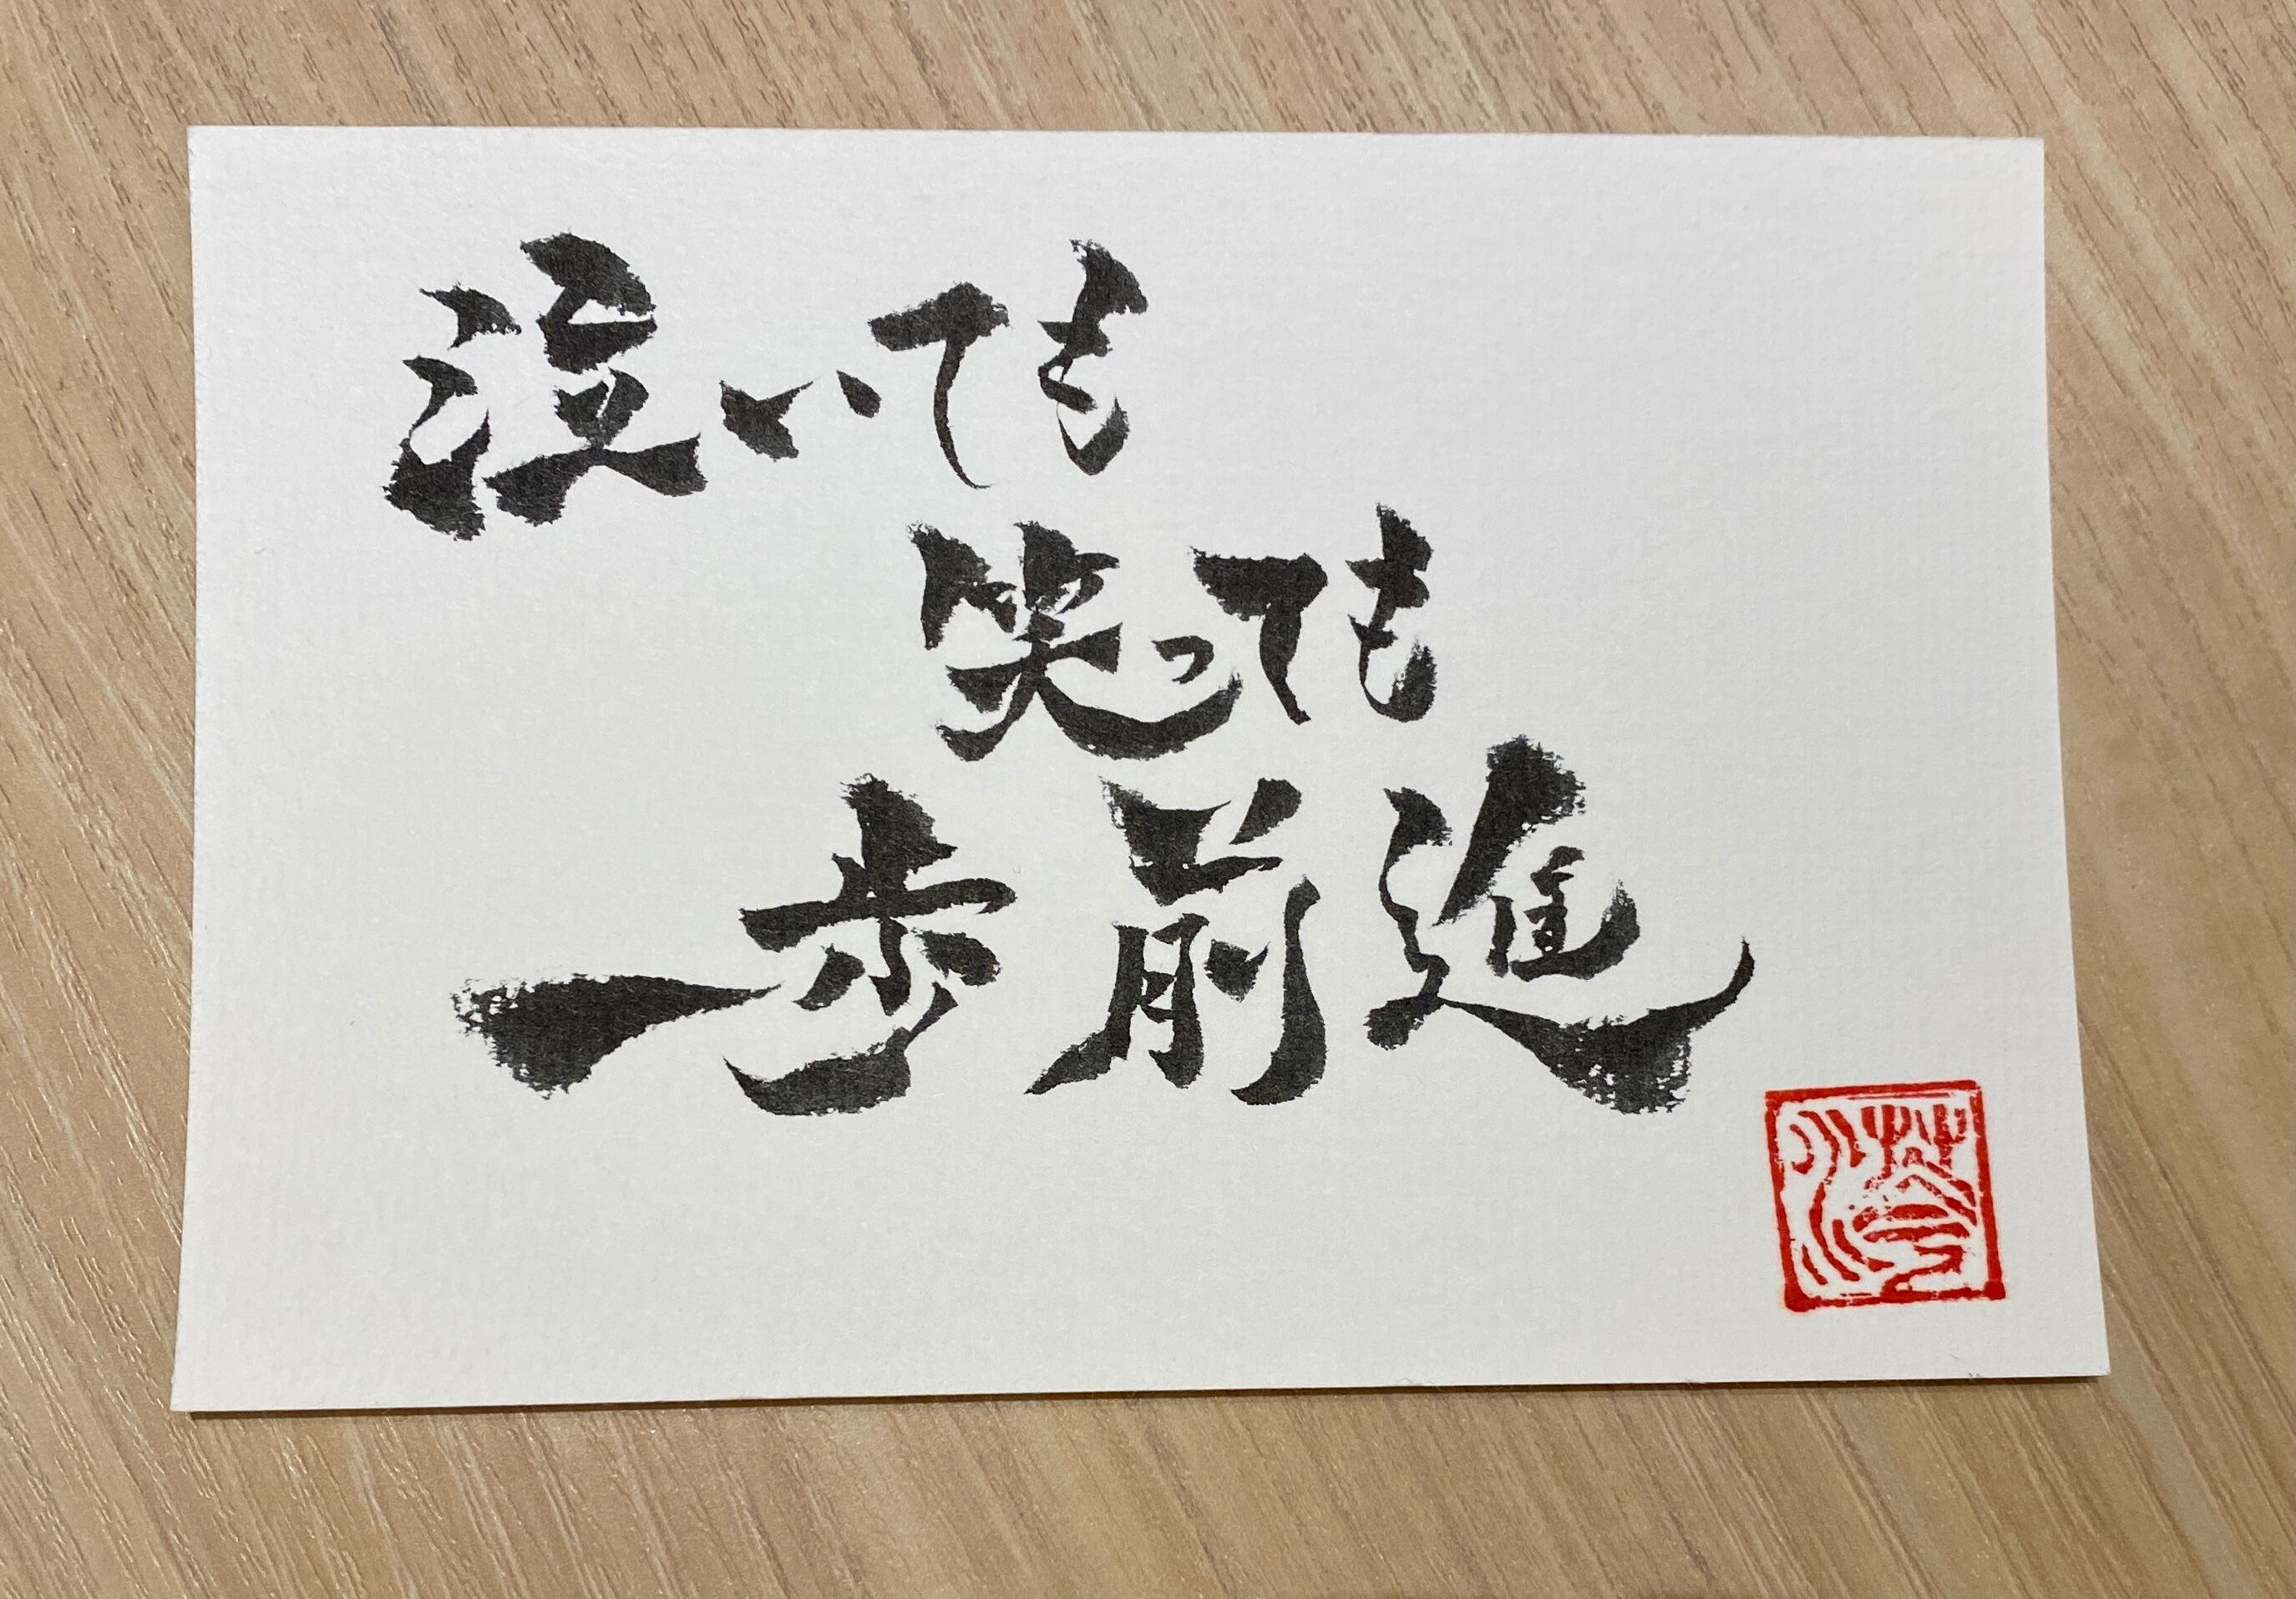 泣いても
笑っても
一歩前進